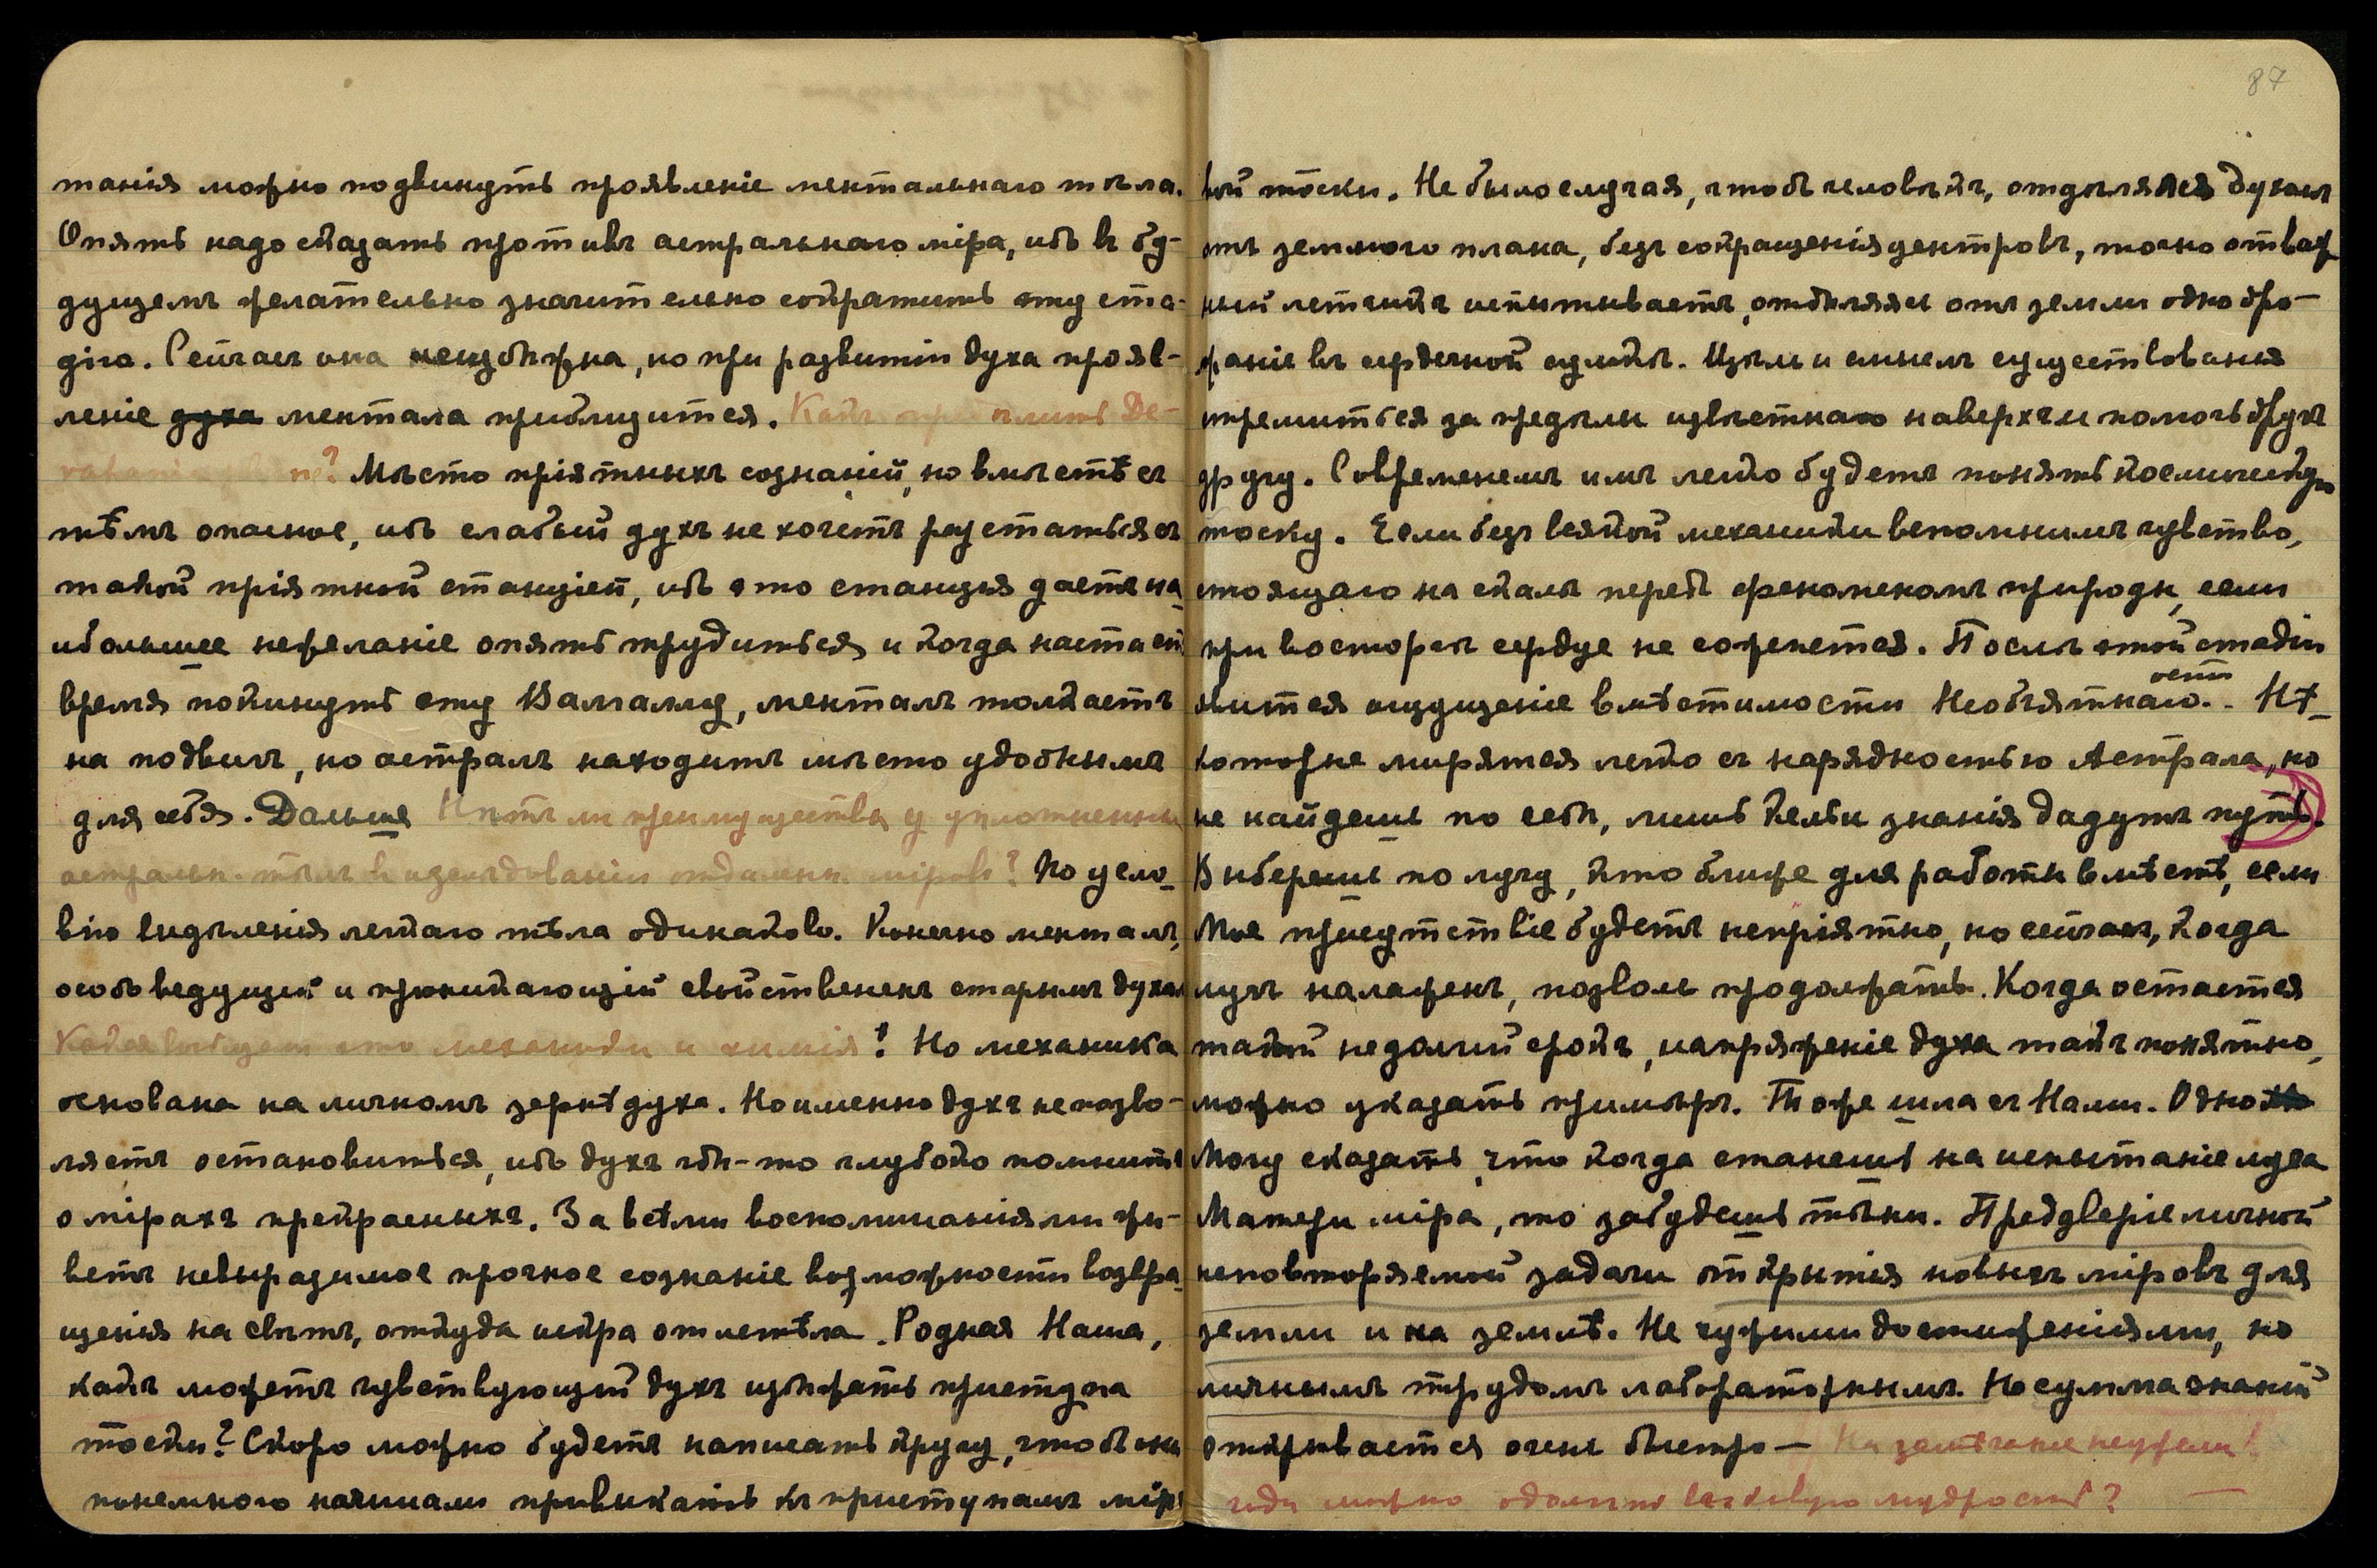 танія можно подвинуть проявленіе ментальнаго тѣла.
Опять надо сказать противъ астральнаго міра, ибо въ бу-
дущемъ желательно значительно сократить эту ста-
дію. Сейчасъ она неизбѣжна, но при развитіи духа прояв-
леніе духа ментала приблизится. Какъ De-
vahan Мѣсто пріятныхъ сознаній, но вмѣстѣ съ
тѣмъ опасное, ибо слабый духъ не хочетъ разстаться съ
такой пріятной станціей, ибо это станція даетъ на-
ибольшее нежеланіе опять трудиться, и когда настаетъ
время покинуть эту Валгаллу, менталъ толкаетъ
на подвигъ, но астралъ находитъ мѣсто удобнымъ
для себя. Дальше Нѣтъ ли преимущества у уплотненныхъ
астральн. тѣлъ въ изслѣдованіи отдаленн. міровъ? По усло-
вію выдѣленія легкаго тѣла одинаково. Конечно менталъ,
особо ведущій и проникающій свойствененъ старымъ духамъ
Какая вообщемъ это механика и химія! Но механика
основана на личномъ зернѣ духа. Но именно духъ не позво-
ляетъ остановиться, ибо духъ гдѣ-то глубоко помнитъ
о мірахъ прекрасныхъ. За всѣми воспоминаніями жи-
ветъ невыразимое прочное сознаніе возможности возвра-
щенія на свѣтъ, откуда искра отлетѣла. Родная Наша,
какъ можетъ чувствующій духъ избѣжать приступа
тоски? Скоро можно будетъ написать кругу, чтобъ они
понемного начинали привыкать къ приступамъ міро
87
вой тоски. Не было случая, чтобъ человѣкъ, отдѣляяся духомъ
отъ земного плана, безъ сокращенія центровъ, точно отваж
ный летчикъ испытываетъ, отдѣляясь отъ земли одно дро-
жаніе въ сердечной сумкѣ. Цѣль и смыслъ существованія
стремиться за предѣлы извѣстнаго наверхъ и помочь другъ
другу. Современемъ имъ легко будетъ понять космическую
тоску. Если безъ всякой механики вспомнимъ чувство,
стоящаго на скалѣ передъ феноменомъ природы, если
при восторгѣ сердце не сожмется. Послѣ этой стадіи
явится ощущеніе вмѣстимости Необъятнаго. Нѣ-
которые мирятся легко съ нарядностью Астрала, но
не найдешь по себѣ, лишь кельи знанія дадутъ путь.
Выберешь по лучу, кто ближе для работы вмѣстѣ, если
Мое присутствіе будетъ непріятно, но сейчасъ, когда
лучъ налаженъ, позволь продолжать. Когда остается
такой недолгій срокъ, напряженіе духа такъ понятно,
можно указать примѣръ. Тоже шла съ Нами. Одно
Могу сказать, что когда станешь на испытаніе луча
Матери міра, то забудешь тѣни. Предверіе личной
неповторяемой задачи открытія новыхъ міровъ для
земли и на землѣ. Не чужими достиженіями, но
личнымъ трудомъ лабораторнымъ. Но сумма знаній
открывается очень быстро — На замѣчаніе неужели въ
годы можно одолѣть вѣковую мудрость? —